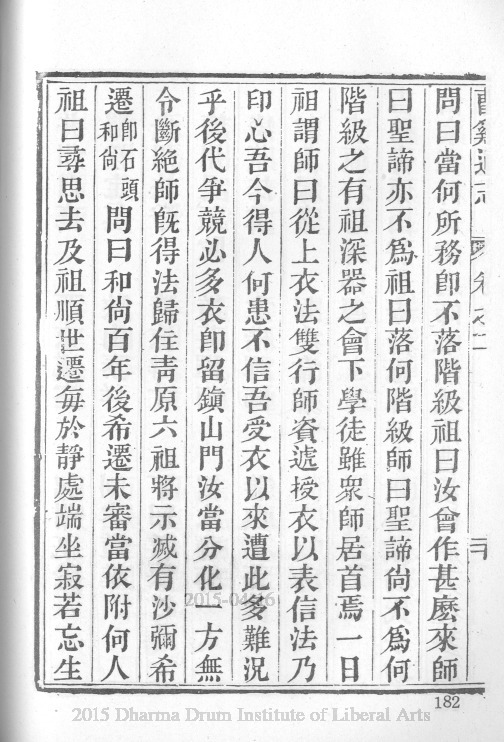 曹谿通志　卷之二　二十
問曰當何所務卽不落階級祖曰汝曾作甚麼來師
曰聖諦亦不爲祖曰落何階級師曰聖諦尙不爲何
階級之有祖深器之會下學徒雖衆師居首焉一日
祖謂師曰從上衣法雙行師資遞授衣以表信法乃
印心吾今得人何患不信吾受衣以來遭此多難況
乎後代爭競必多衣卽留鎭山門汝當分化一方無
令斷絕師旣得法歸住靑原六祖將示滅有沙彌希
遷卽石頭和尙問曰和尙百年後希遷未審當依附何人
祖曰尋思去及祖順世遷每於靜處端坐寂若忘生
182
2015-04-16
2015 Dharma Drum Institute of Liberal Arts